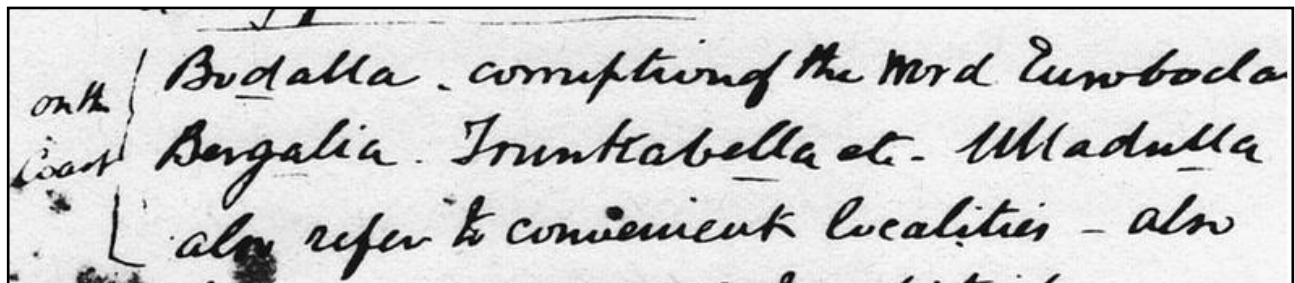 on the Coast
Bodalla. corruption of the word Eurobodla
Bergalia. Trunkabella etc. Ulladulla
also refer to convenient localities - also